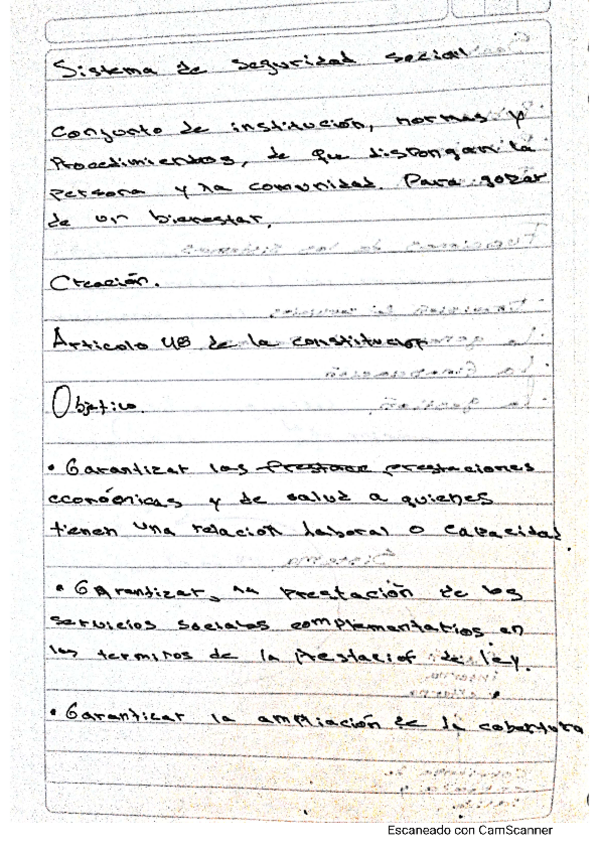 Sistema de Seguridad Sozial
Conjunto de institución, normas y
Procedimientos, de que dispongan la
persona y la comunidad. Para gozar
de un bienestar.
Creación.
Articolo 48 de la constitucion
Objetivo.
• Garantizar las prestaciones
económicas y de salud a quienes
tienen una relacion laboral o capacidad.
• Garantizar, la prestación de los
servicios sociales complementarios en
los termiros de la prestacion de ley.
• Garantizar la ampliación de la cobertura
Escaneado con CamScanner